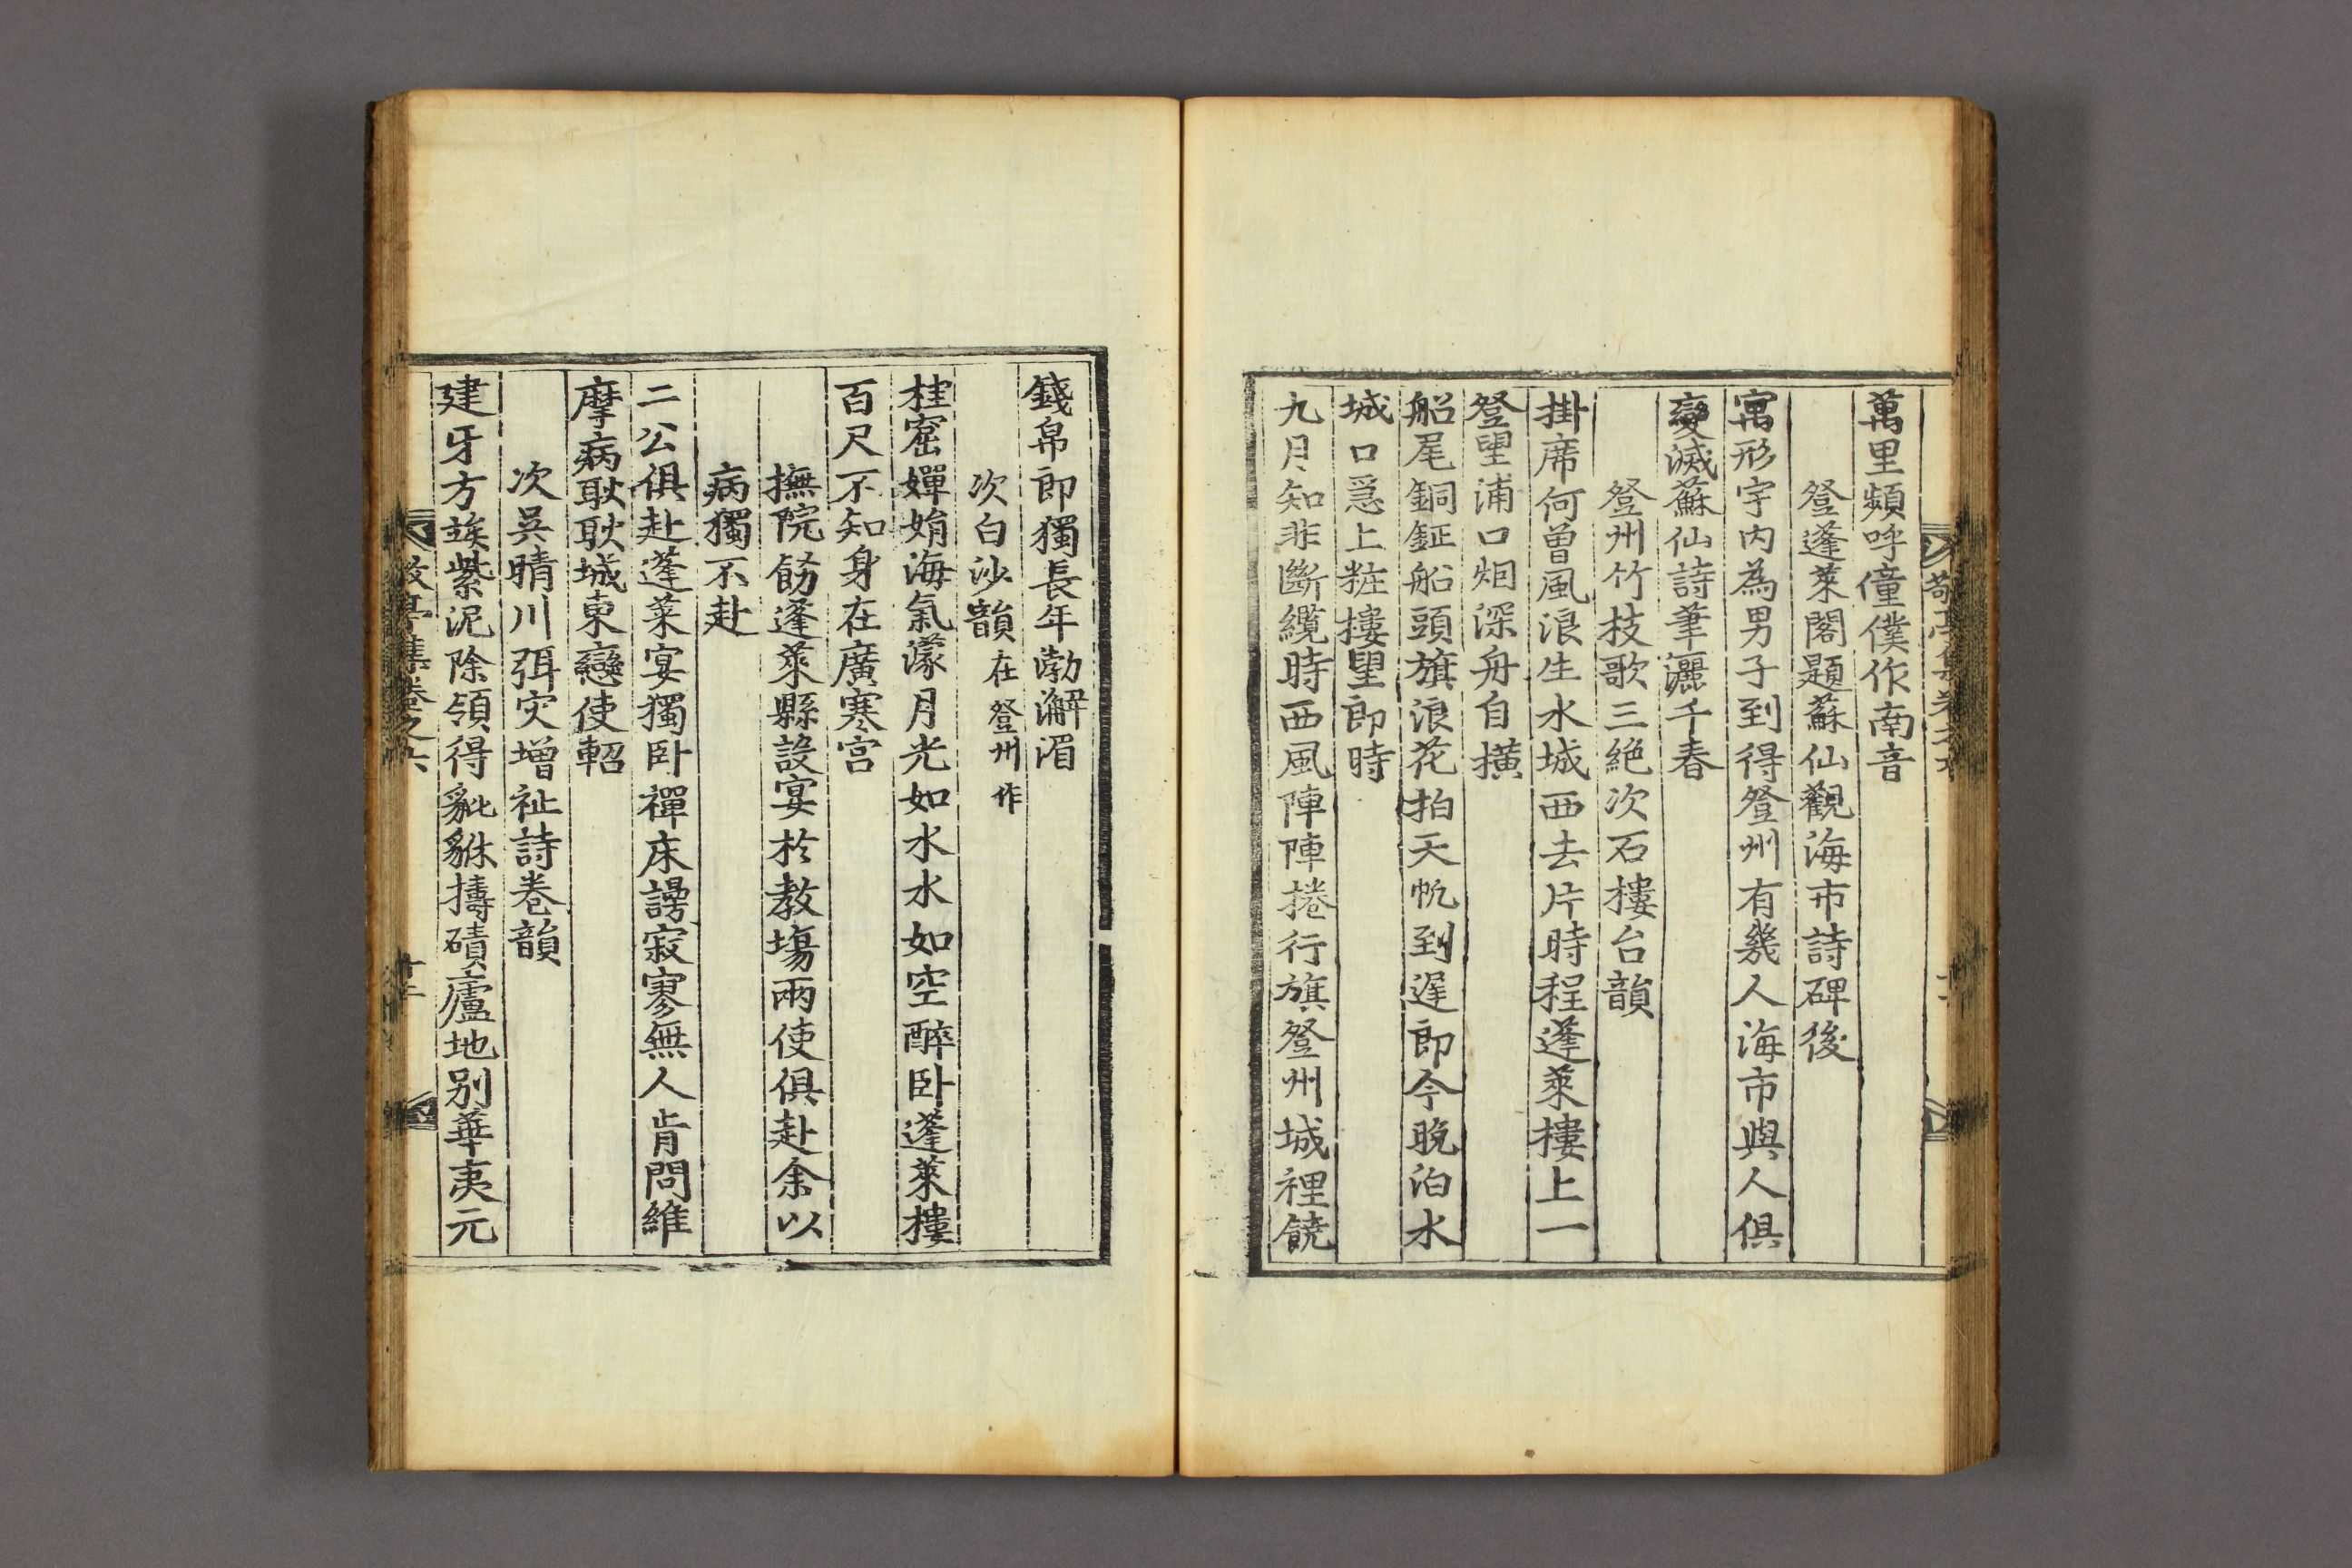 萬里頻呼僮僕作南音
登蓬萊閣題蘇仙觀海市詩碑後
寓形宇内為男子到得登州有幾人海市與人俱
變滅蘇仙詩筆灑千春
登州竹枝歌三絶次石樓台韻
掛席何曾風浪生水城西去片時程蓬萊樓上一
登望浦口烟深舟自橫
船尾銅鉦船頭旗浪花拍天帆到遲即今晚泊水
城口爲上粧樓望即時
九月知非斷纜時西風陣陣捲行旗登州城裡饒
錢帛即獨長年渤澥湄
次白沙韻在登州作
桂窟嬋娟海氣濛月光如水水如空醉卧蓬萊樓
百尺不知身在廣寒宮
撫院飭蓬萊縣設宴於教塲兩使俱赴余以
病獨不赴
二公俱赴蓬莱宴獨卧禪床謾寂寥無人肯問維
摩病耿耿城東戀使軺
次吳晴川弭灾增祉詩卷韻
建牙方竢紫泥除領得豼貅擣磧廬地別華夷元
亭集卷之六